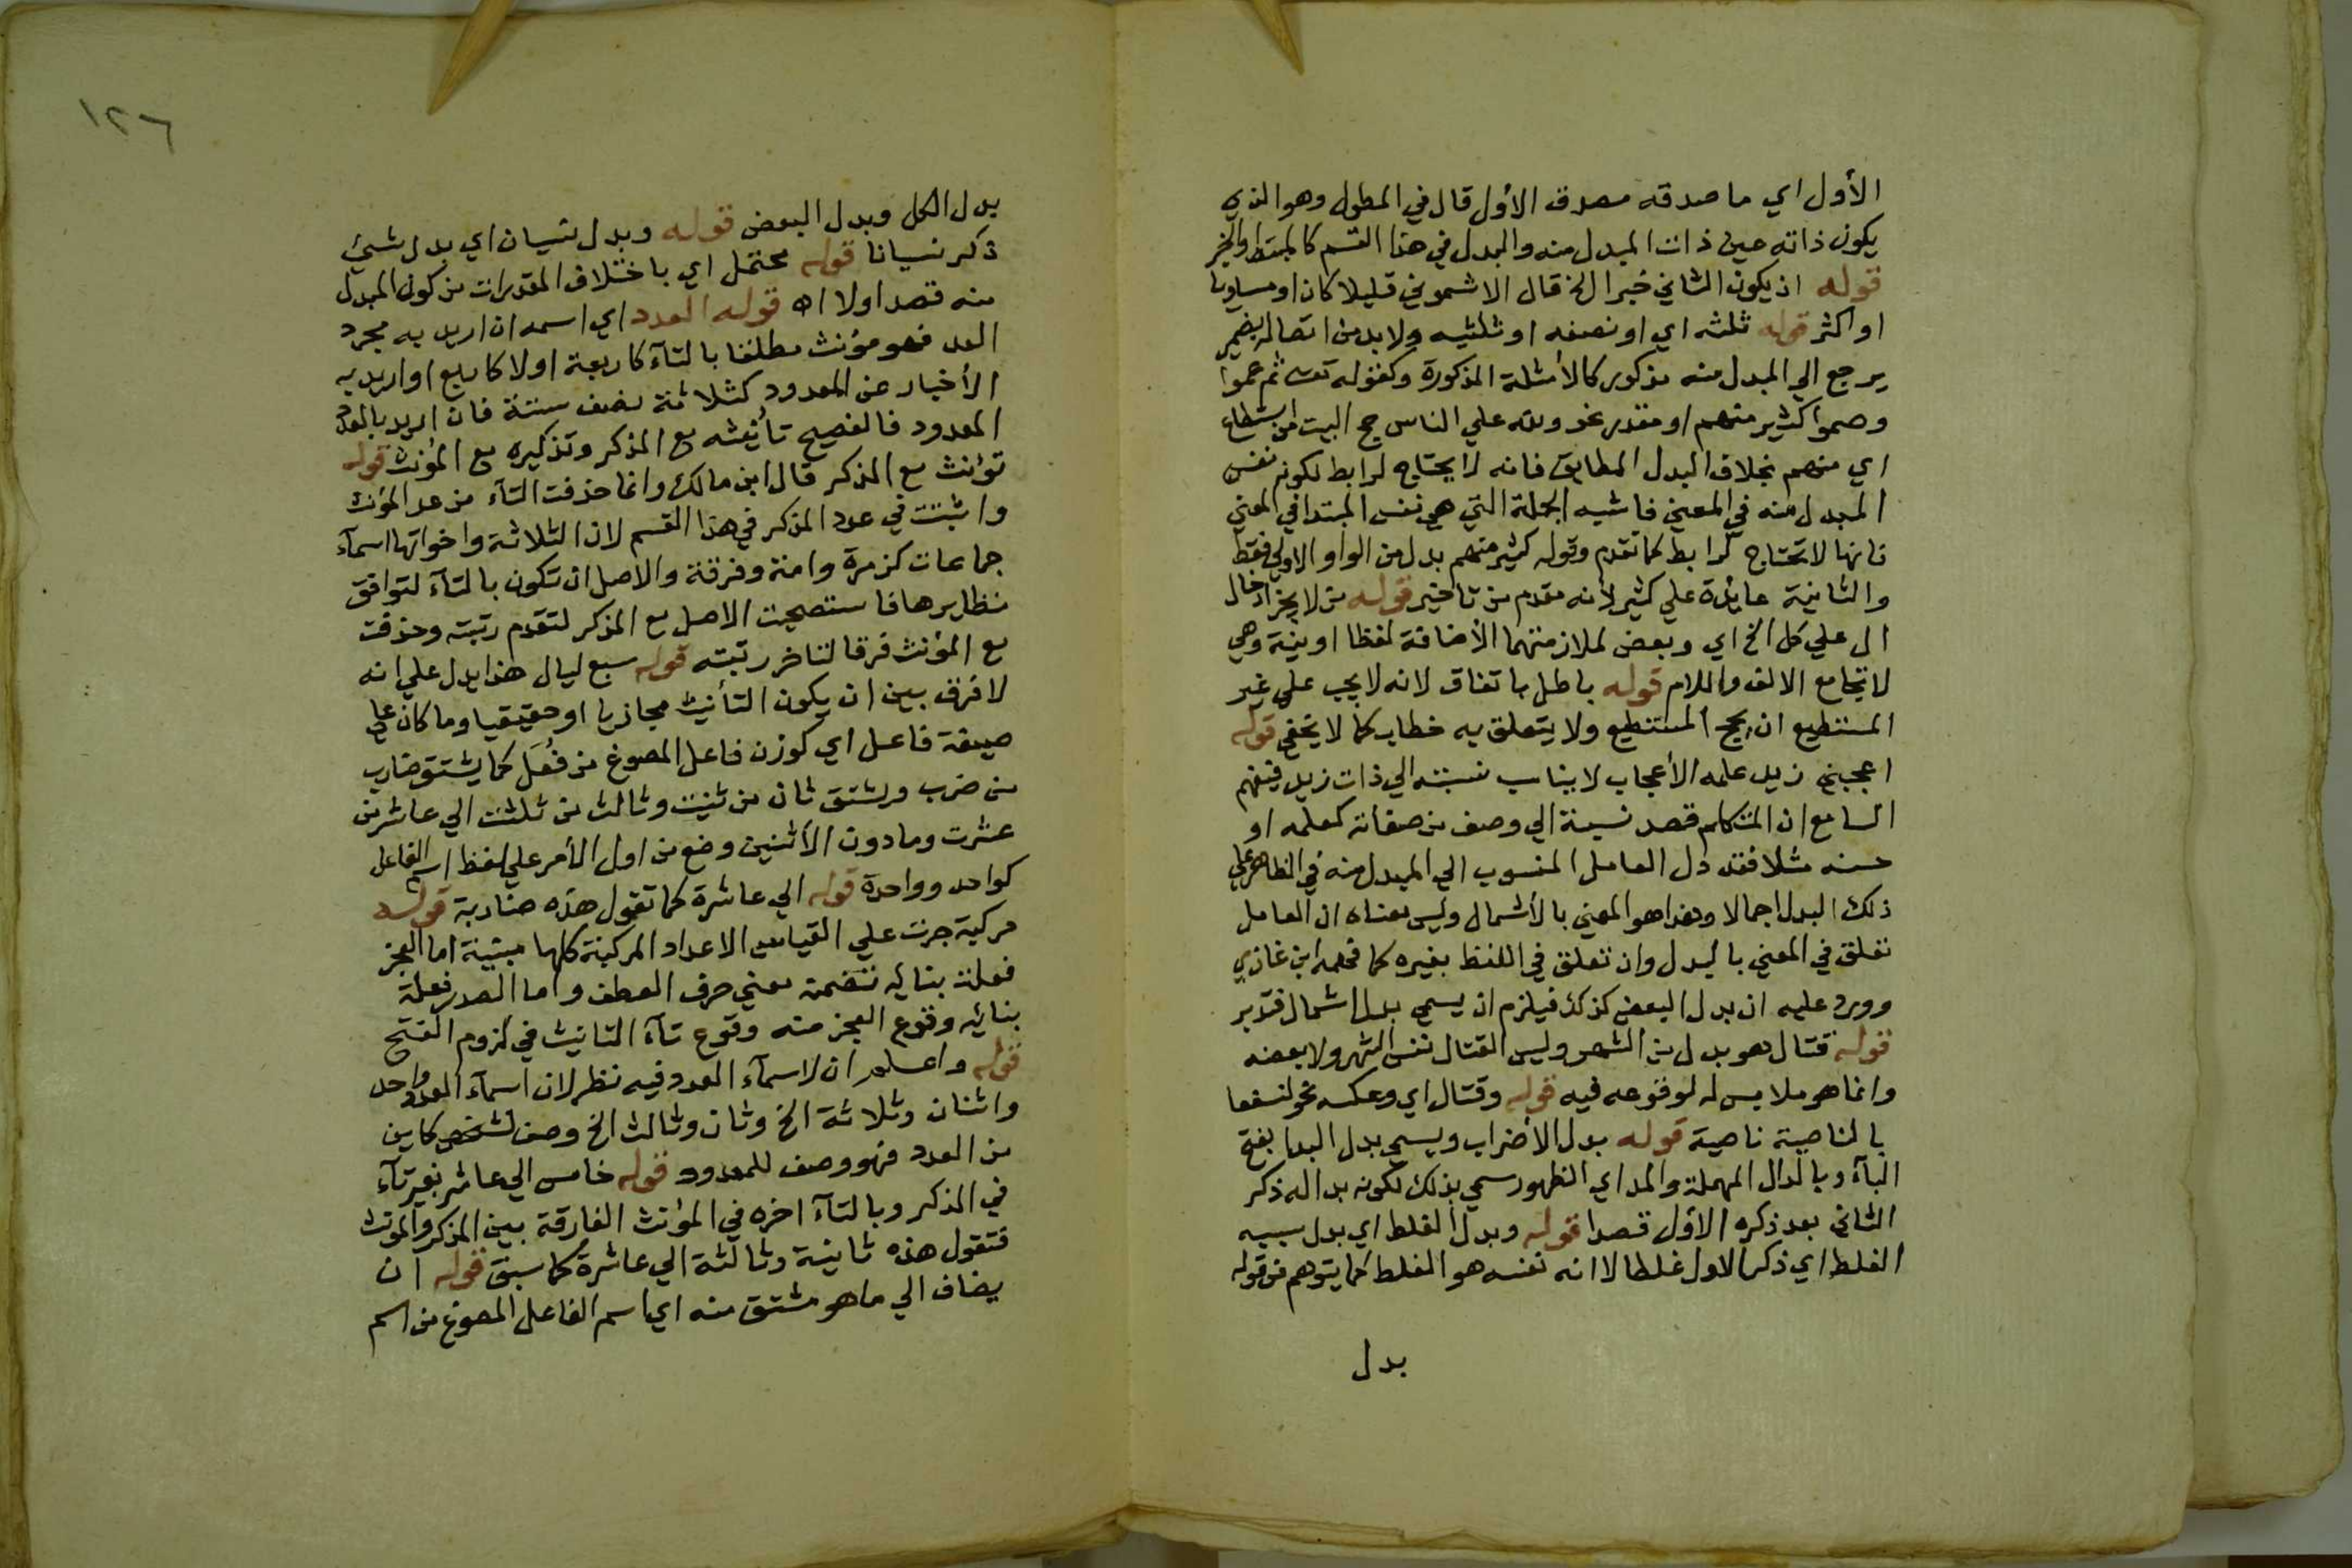 الأول اي ما صدقه مصدق الأول قال في المطول وهو الذي
يكون ذاته عين ذات المبدل منه والبدل في هذا القسم كالمبتدا والخبر
قوله ان يكون الثاني خبرا الخ قال الاشموني قليلا كان او مساويا
او اكثر قوله ثلثه اي او نصفه او ثلثيه ولا بد من اتصاله بضمير
يرجع الي المبدل منه مذكور كالأمثلة المذكورة وكقوله تعسى ثم عموا
وصموا كثير منهم او مقدر نحو ولله علي الناس حج البيت من استطاع
اي منهم بخلاف البدل المطابق فانه لا يحتاج لرابط لكونه نفس
المبدل منه في المعني فاشبه الجملة التي هي نفس المبتدا في المعني
فانها لا تحتاج لرابط كما تقدم وقوله كثير منهم بدل من الواو الاولي فقط
والثانية عائدة علي كثير لأنه مقدم من تاخير قوله من لا يجيز ادخال
ال علي كل الخ اي وبعض لملازمتهما الأضافة لفظا او نية وهي
لا تجامع الالف واللام قوله باطل باتفاق لانه لا يجب علي غير
المستطيع ان يحج المستطيع ولا يتعلق به خطاب كما لا يخفي قوله
اعجبني زيد علمه الأعجاب لا يناسب نسبته الي ذات زيد فيفهم
السامع ان المتكلم قصد نسبة الي وصف من صفاته كعلمه او
حسنه مثلا فقد دل العامل المنسوب الي المبدل منه في الظاهر علي
ذلك البدل اجمالا وهذا هو المعني بالأشمال وليس معناه ان العامل
تعلق في المعني بالبدل وان تعلق في اللفظ بغيره كما فهمه ابن غازي
وورد عليه ان بدل البعض كذلك فيلزم ان يسمي بدل اشمال فتدبر
قوله قتال هو بدل من الشهر وليس القتال نفس الشهر ولا بعضه
وانما هو ملابس له لوقوعه فيه قوله وقتال اي وعكسه نحو لنسفعا
بالناصية ناصية قوله بدل الأضراب ويسمي بدل البدا بفتح
البآء وبالدال المهملة والمد اي الظهور سمي بذلك لكونه بدا له ذكر
الثاني بعد ذكره الأول قصدا قوله وبدل الغلط اي بدل سببه
الغلط اي ذكر الاول غلطا لا انه نفسه هو الغلط كما يتوهم من قوله
بدل
١٢٦
بدل الكل وبدل البعض قوله وبدل نسيان اي بدل شيئ
ذكر نسيانا قوله محتمل اي باختلاف المقدرات من كون المبدل
منه قصد اولا اه قوله العدد اي اسمه ان اريد به مجرد
العدد فهو مؤنث مطلقا بالتآء كاربعة اولا كاربع او اريد به
الأخبار عن المعدود كثلاثة نصف ستة فان اريد بالعدد
المعدود فالفصيح تأنيثه مع المذكر وتذكيره مع المؤنث قوله
تؤنث مع المذكر قال ابن مالك وانما حذفت التآء من عدد المؤنث
واثبتت في عدد المذكر في هذا القسم لان الثلاثة واخواتها اسمآء
جماعات كزمرة وامة وفرقة والاصل ان تكون بالتآء لتوافق
نظايرها فاستصحبت الاصل مع المذكر لتقدم رتبته وحذفت
مع المؤنث فرقا لتاخر رتبته قوله سبع ليال هذا يدل علي انه
لا فرق بين ان يكون التأنيث مجازيا او حقيقيا وما كان علي
صيغة فاعل اي كوزن فاعل المصوغ من فعل كما يشتق ضارب
من ضرب ويشتق ثان من ثنيت وثالث من ثلثت الي عاشر من
عشرت وما دون الأثنين وضع من اول الأمر علي لفظ اسم الفاعل
كواحد وواحدة قوله الي عاشرة كما تقول هذه ضاربة قوله
مركبة جرت علي القياس الاعداد المركبة كلها مبنية اما العجز
فعلة بنايه تضمنه معني حرف العطف واما الصدر فعلة
بنائه وقوع العجز منه وقوع تآء التانيث في لزوم الفتح
قوله واعلم ان لاسمآء العدد فيه نظر لان اسمآء العدد واحد
واثنان وثلاثة الخ وثان وثالث الخ وصف لشخص كاين
من العدد فهو وصف للمعدود قوله خامس الي عاشر بغير تآء
في المذكر وبالتآء اخره في المؤنث الفارقة بين المذكر والمؤنث
فتقول هذه ثانية وثالثة الي عاشرة كما سبق قوله ان
يضاف الي ما هو مشتق منه اي اسم الفاعل المصوغ من اسم